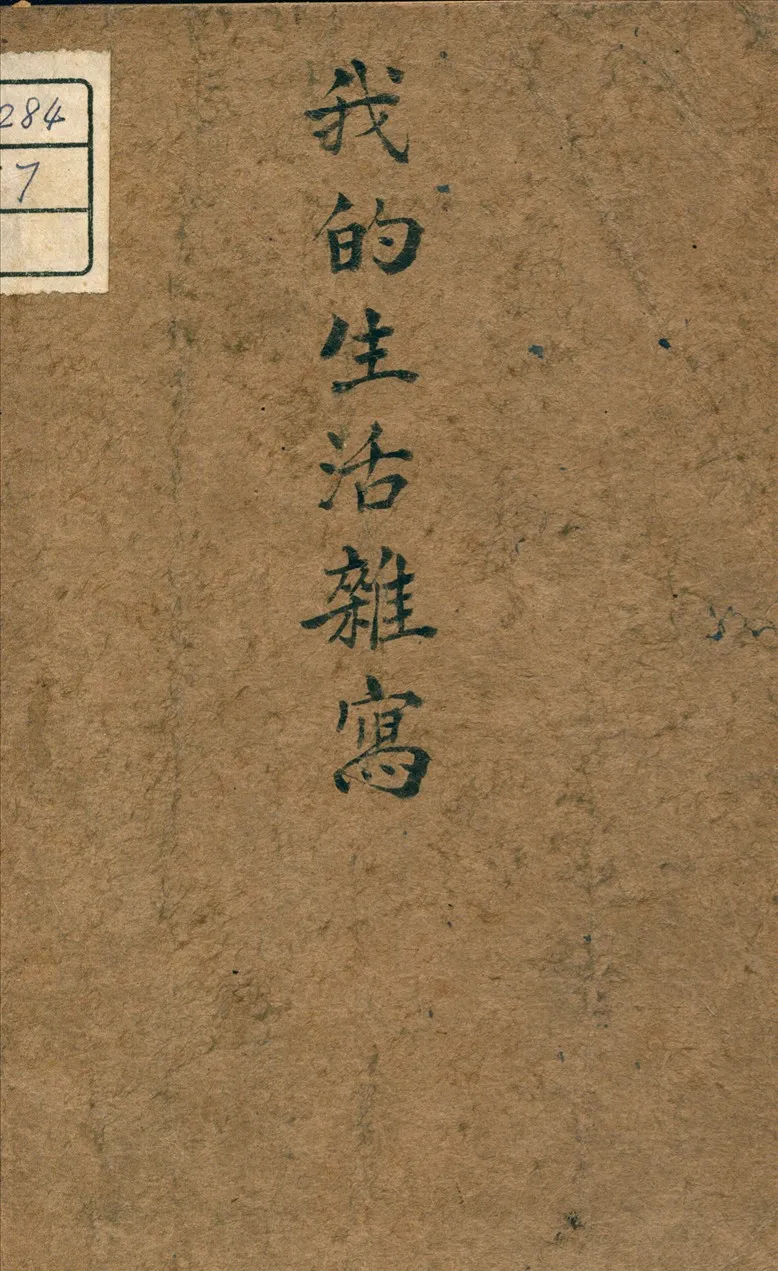 我的生活雜寫
284
7